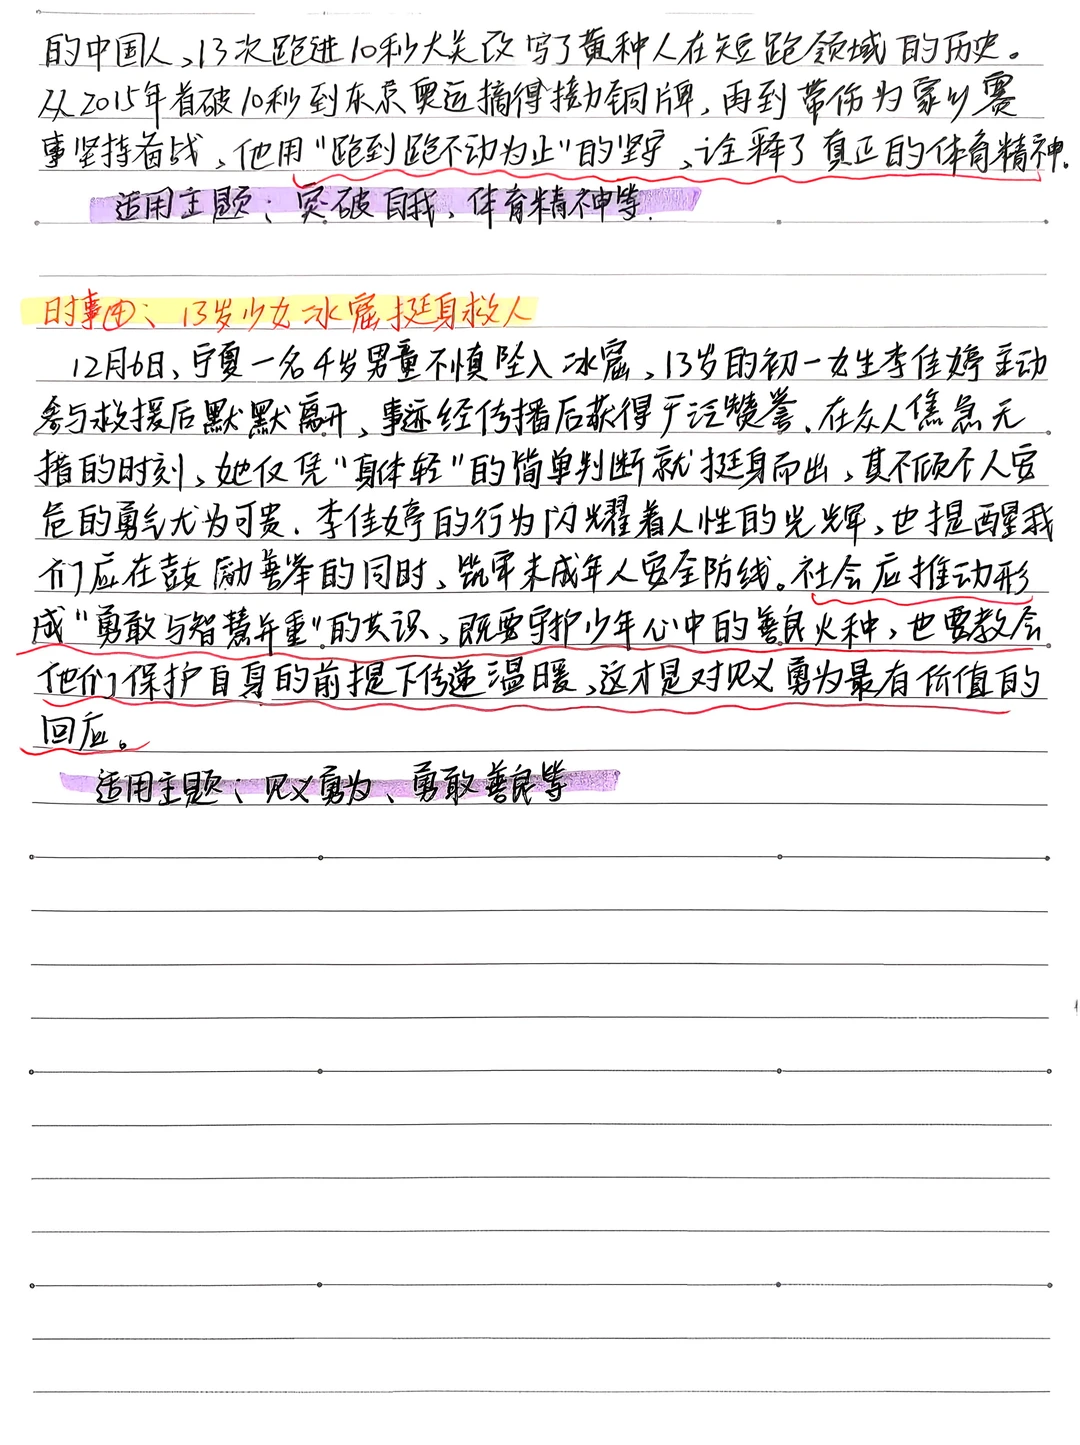 的中国人、13次跑进10秒大关改写了黄种人在短跑领域的历史。
从2015年首破10秒到东京奥运摘得接力铜牌，再到带伤为家乡赛
事坚持备战、他用“跑到跑不动为止”的坚守、诠释了真正的体育精神.
适用主题：突破自我、体育精神等.
时事④：13岁少女冰窟挺身救人
12月6日、宁夏一名4岁男童不慎坠入冰窟、13岁的初一女生李佳婷主动
参与救援后默默离开、事迹经传播后获得广泛赞誉、在众人焦急无
措的时刻、她仅凭“身体轻”的简单判断就挺身而出，其不顾个人安
危的勇气尤为可贵.李佳婷的行为闪耀着人性的光辉，也提醒我
们应在鼓励善举的同时、筑牢未成年人安全防线。社会应推动形
成“勇敢与智慧并重”的共识、既要守护少年心中的善良火种，也要教会
他们保护自身的前提下传递温暖、这才是对见义勇为最有价值的
回应。
适用主题：见义勇为、勇敢善良等